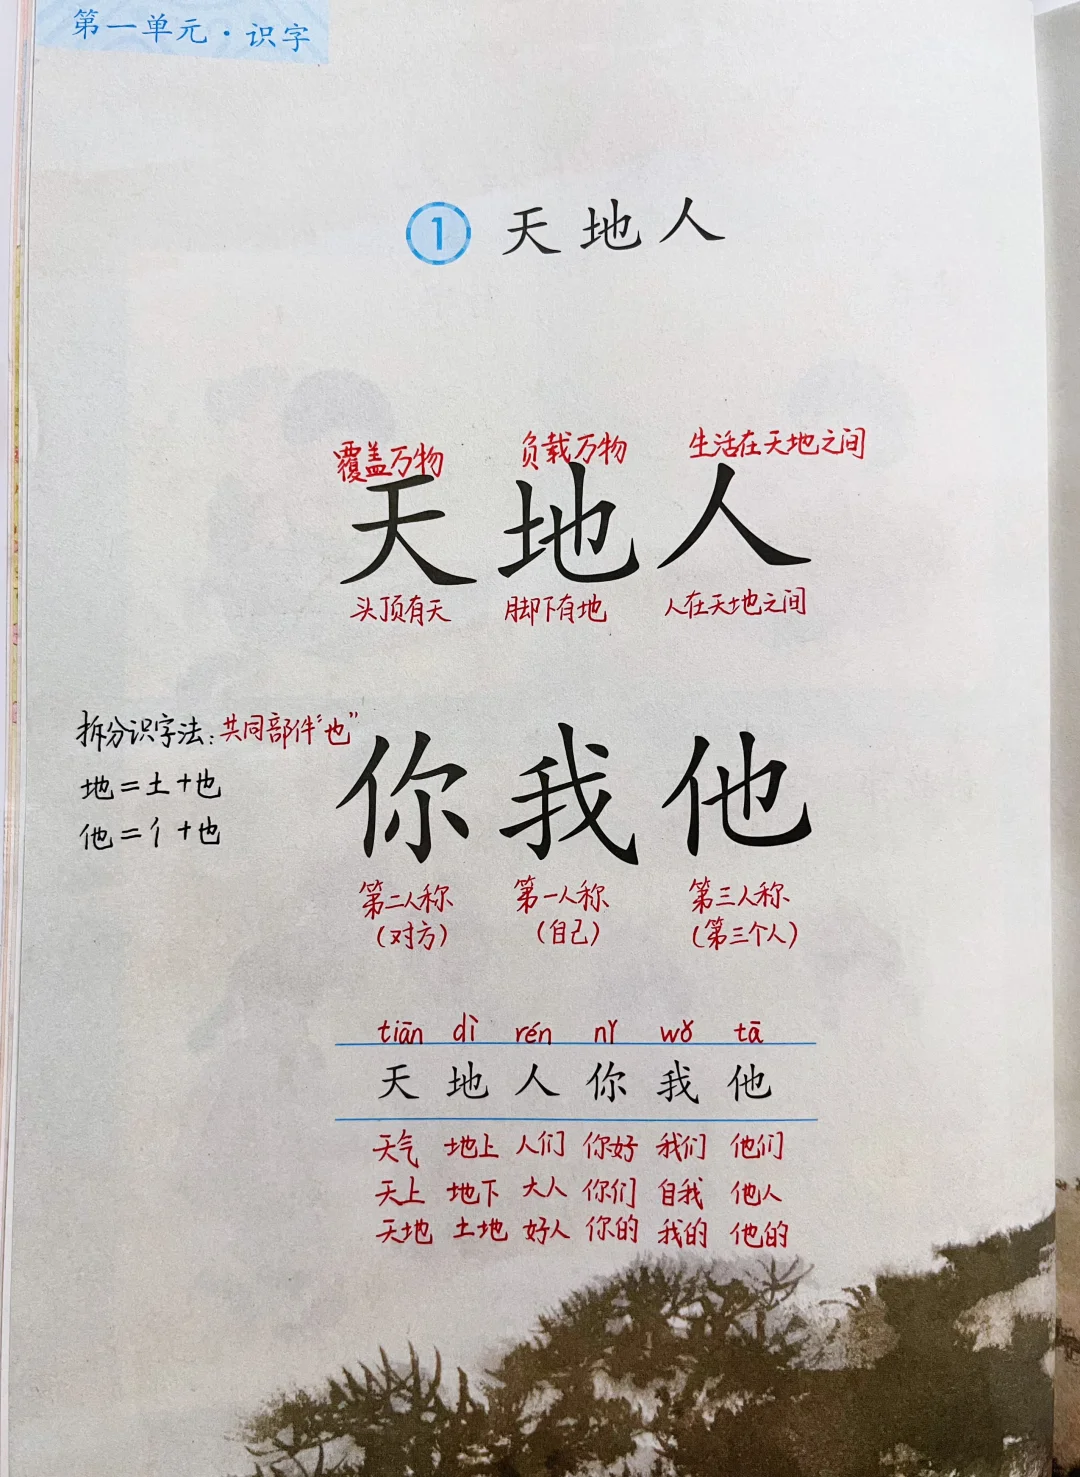 第一单元·识字
1 天地人
覆盖万物 负载万物 生活在天地之间
天地人
头顶有天 脚下有地 人在天地之间
拆分识字法:共同部件“也”
地=土+也
他=亻+也
你我他
第二人称 第一人称 第三人称
(对方) (自己) (第三个人)
tiān dì rén nǐ wǒ tā
天 地 人 你 我 他
天气 地上 人们 你好 我们 他们
天上 地下 大人 你们 自我 他人
天地 土地 好人 你的 我的 他的